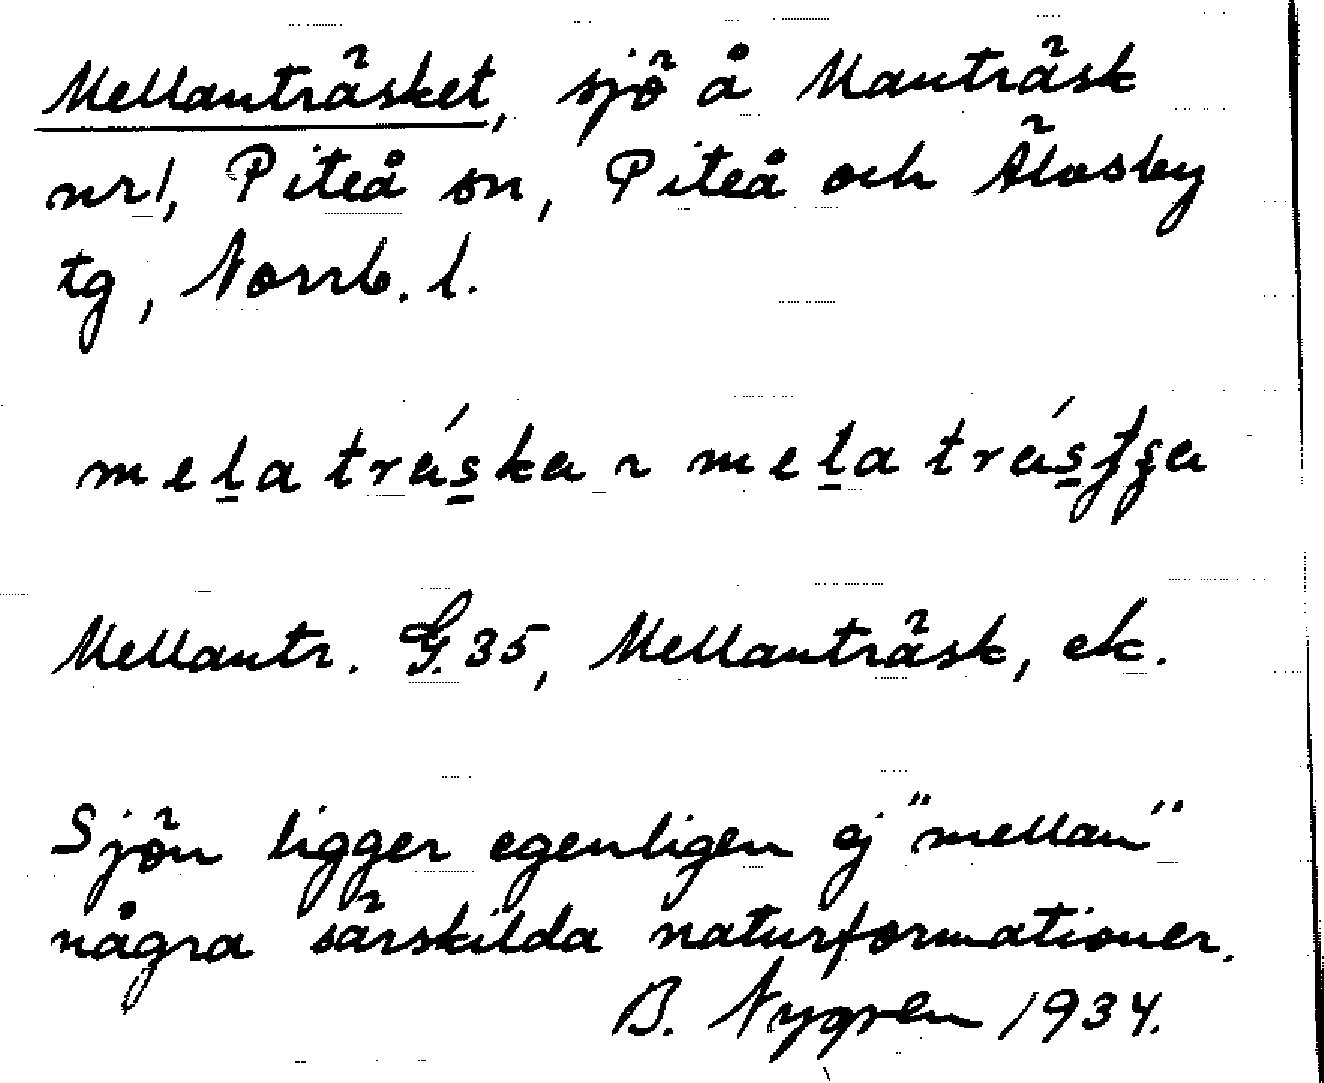 Mellanträsket, sjö å Manträsk
nr 1, Piteå sn, Piteå och Älvsby
tg, Norrb. l.
Mellantr. G. 35, Mellanträsk, ek.
Sjön ligger egentligen ej "mellan"
några särskilda naturformationer.
B. Nygren 1934.